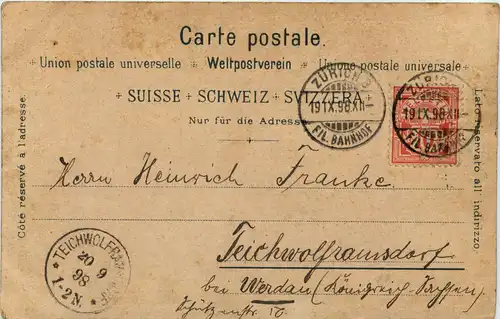 Carte postale.
Union postale universelle + Weltpostverein + Unione postale universale
+ SUISSE + SCHWEIZ + SVIZZERA +
Nur für die Adresse
Côté réservé à l'adresse.
Lato riservato all indirizzo.
ZÜRICH
19 IX. 98 XII
FIL. BAHNHOF
ZÜRICH
19 IX. 98 XII
FIL. BAHNHOF
Herrn Heinrich Franke
Teichwolframsdorf
bei Werdau (Königreich Sachsen)
Schützenstr 10
TEICHWOLFRAMSDORF
20 9
98
1-2N.